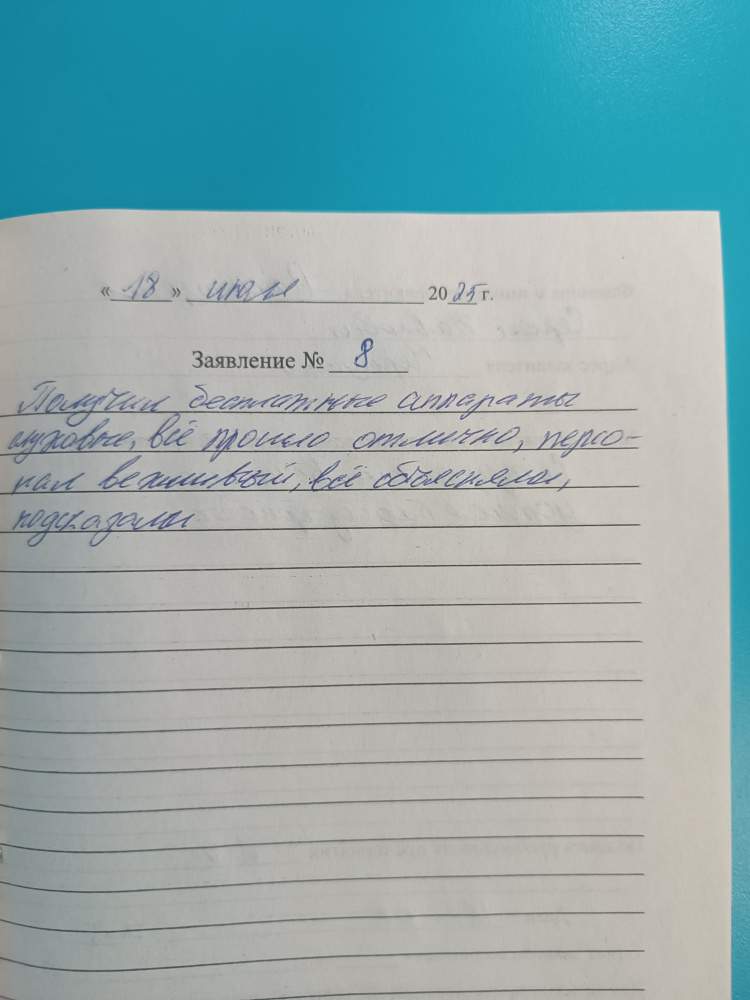 «18» июля 2025 г.
Заявление № 8
Получил бесплатные аппараты
слуховые, всё прошло отлично, персо-
нал вежливый, всё объясняли,
подсказали